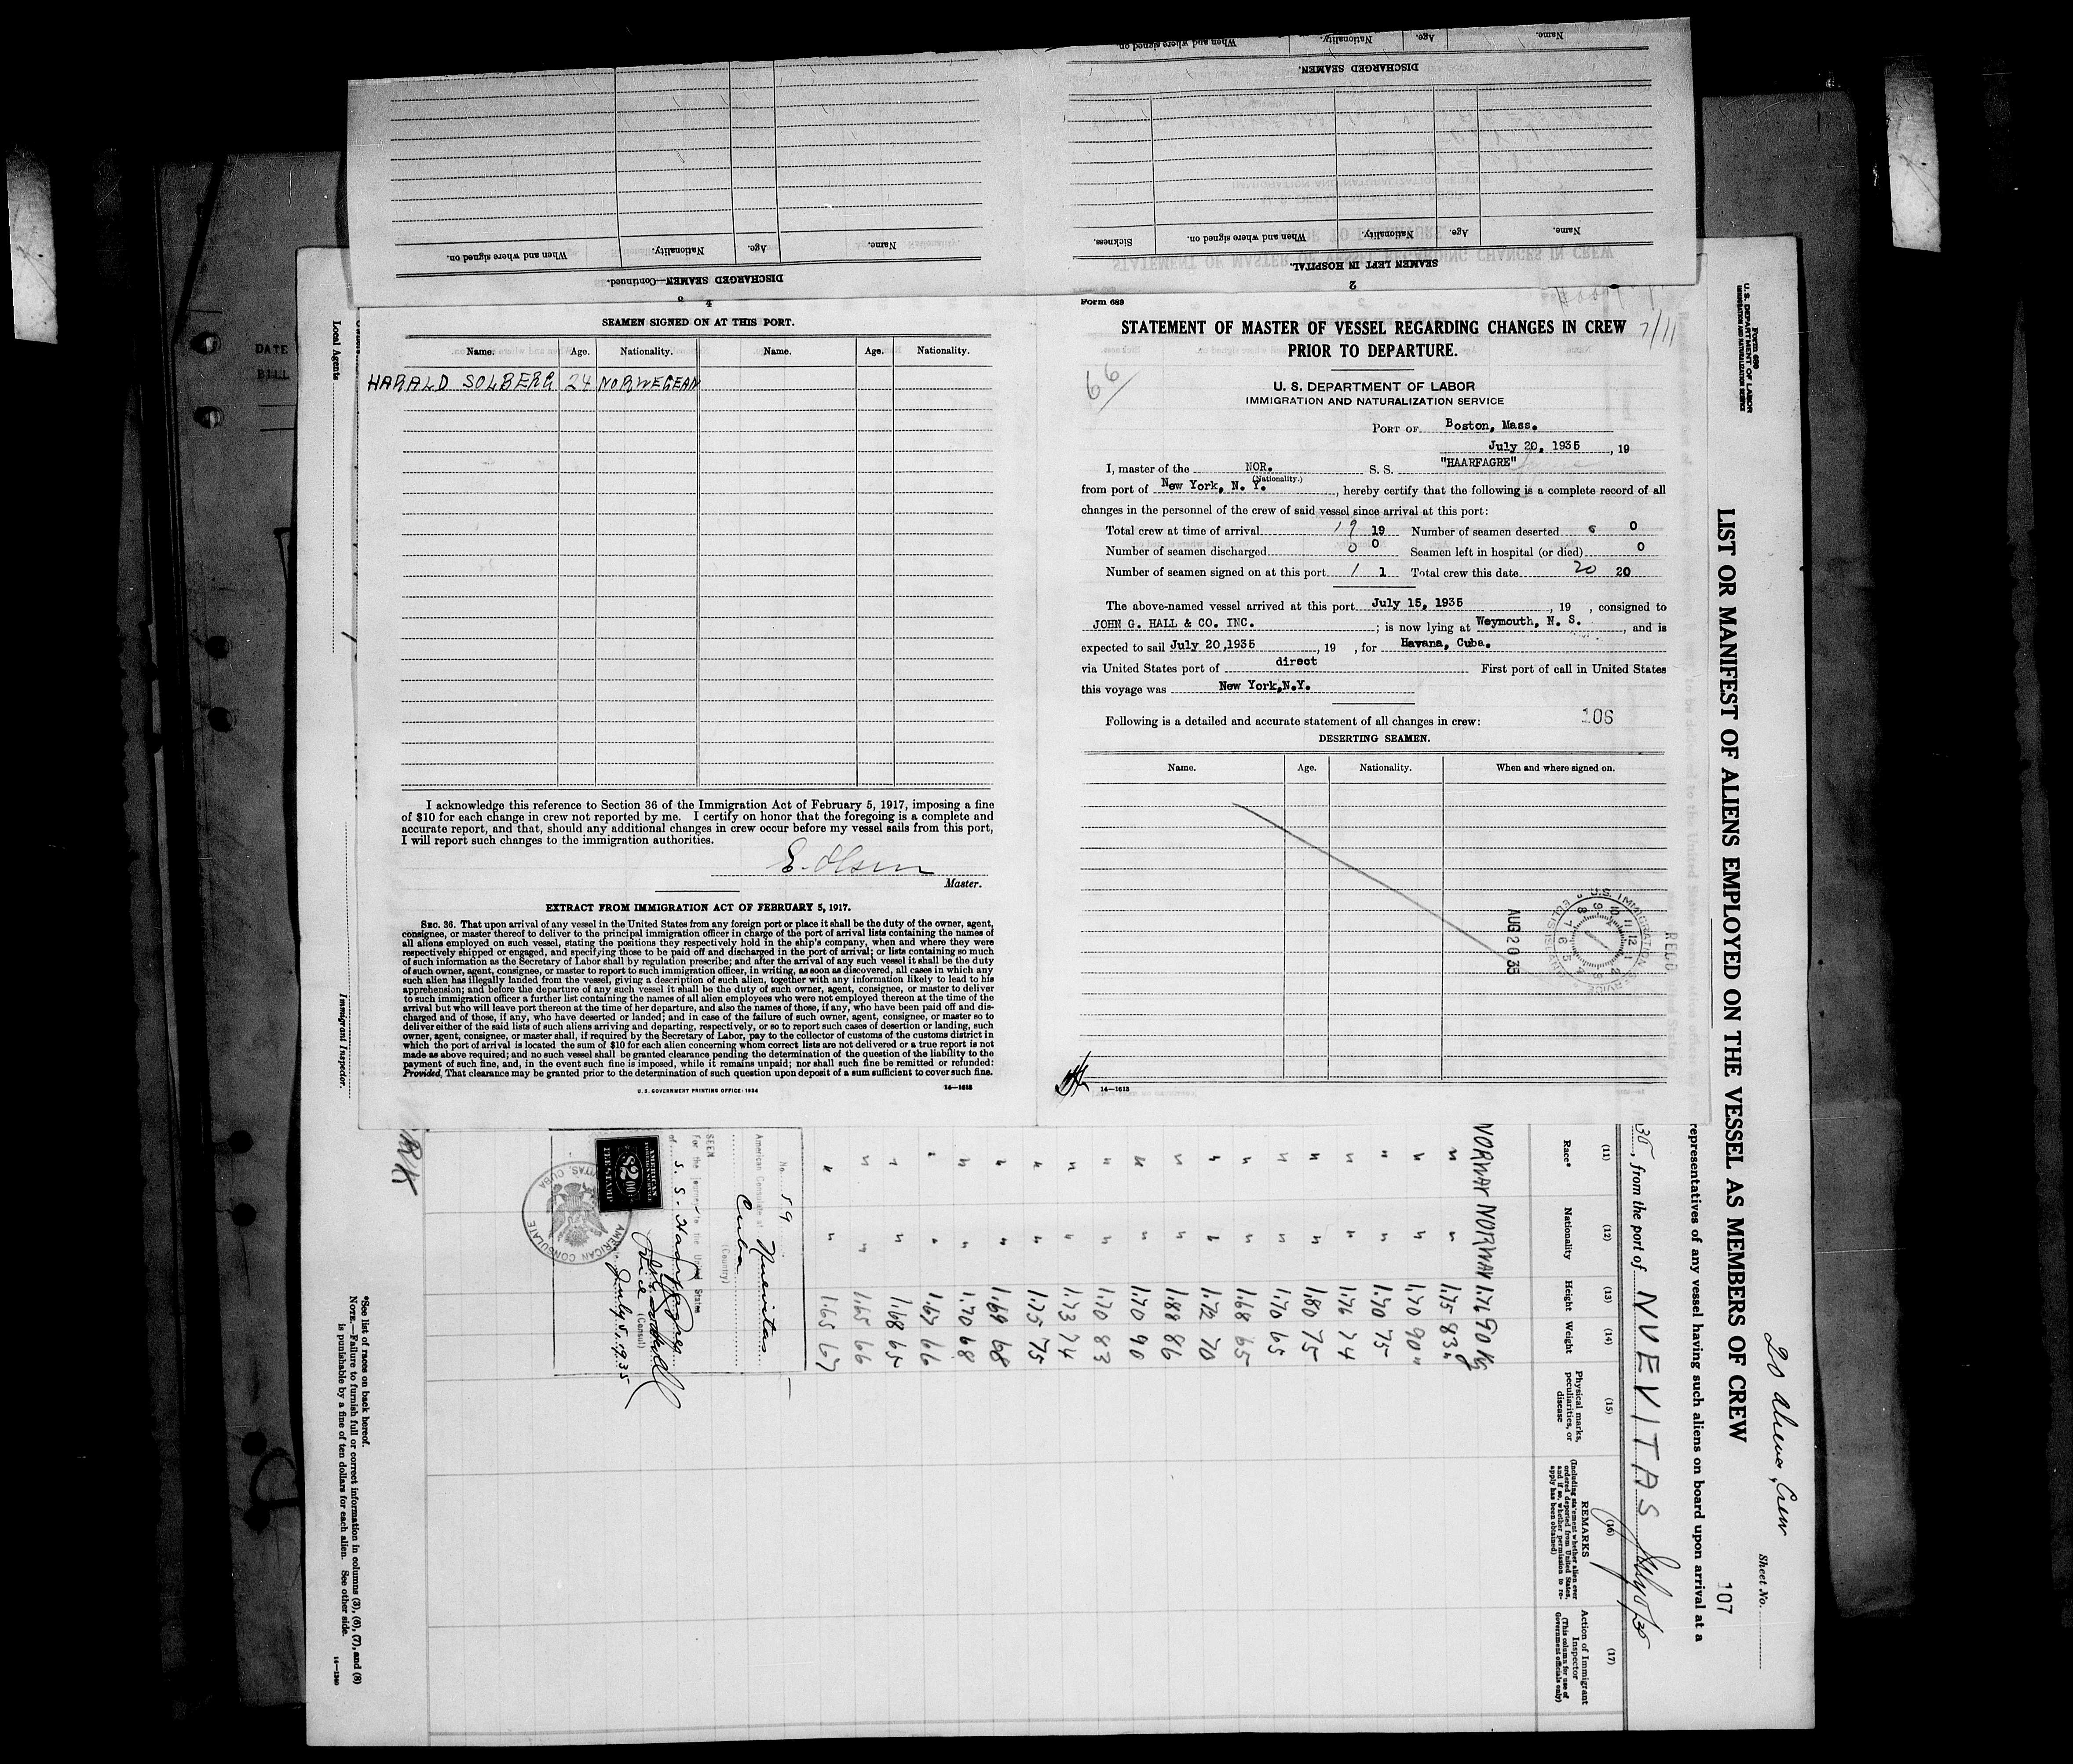 Name.
Age.
Nationality.
When and where signed on.
DISCHARGED SEAMEN.
DISCHARGED SEAMEN—Continued.
Name.
Age.
Nationality.
When and where signed on.
2
SEAMEN LEFT IN HOSPITAL.
Name.
Age.
Nationality.
When and where signed on.
Sickness.
4
SEAMEN SIGNED ON AT THIS PORT.
Name. Age. Nationality. Name. Age. Nationality.
HARALD SOLBERG 24 NORWEGEAN
I acknowledge this reference to Section 36 of the Immigration Act of February 5, 1917, imposing a fine
of $10 for each change in crew not reported by me. I certify on honor that the foregoing is a complete and
accurate report, and that, should any additional changes in crew occur before my vessel sails from this port,
I will report such changes to the immigration authorities.
E. Olsen
Master.
EXTRACT FROM IMMIGRATION ACT OF FEBRUARY 5, 1917.
SEC. 36. That upon arrival of any vessel in the United States from any foreign port or place it shall be the duty of the owner, agent,
consignee, or master thereof to deliver to the principal immigration officer in charge of the port of arrival lists containing the names of
all aliens employed on such vessel, stating the positions they respectively hold in the ship's company, when and where they were
respectively shipped or engaged, and specifying those to be paid off and discharged in the port of arrival; or lists containing so much
of such information as the Secretary of Labor shall by regulation prescribe; and after the arrival of any such vessel it shall be the duty
of such owner, agent, consignee, or master to report to such immigration officer, in writing, as soon as discovered, all cases in which any
such alien has illegally landed from the vessel, giving a description of such alien, together with any information likely to lead to his
apprehension; and before the departure of any such vessel it shall be the duty of such owner, agent, consignee, or master to deliver
to such immigration officer a further list containing the names of all alien employees who were not employed thereon at the time of the
arrival but who will leave port thereon at the time of her departure, and also the names of those, if any, who have been paid off and dis-
charged and of those, if any, who have deserted or landed; and in case of the failure of such owner, agent, consignee, or master so to
deliver either of the said lists of such aliens arriving and departing, respectively, or so to report such cases of desertion or landing, such
owner, agent, consignee, or master shall, if required by the Secretary of Labor, pay to the collector of customs of the customs district in
which the port of arrival is located the sum of $10 for each alien concerning whom correct lists are not delivered or a true report is not
made as above required; and no such vessel shall be granted clearance pending the determination of the question of the liability to the
payment of such fine, and, in the event such fine is imposed, while it remains unpaid; nor shall such fine be remitted or refunded:
Provided, That clearance may be granted prior to the determination of such question upon deposit of a sum sufficient to cover such fine.
U. S. GOVERNMENT PRINTING OFFICE: 1934 14—1613
Form 689
STATEMENT OF MASTER OF VESSEL REGARDING CHANGES IN CREW 7/11
PRIOR TO DEPARTURE.
66/
U. S. DEPARTMENT OF LABOR
IMMIGRATION AND NATURALIZATION SERVICE
PORT OF Boston, Mass.
July 20, 1935, 19
I, master of the NOR. S. S. "HAARFAGRE"
(Nationality.)
from port of New York, N. Y., hereby certify that the following is a complete record of all
changes in the personnel of the crew of said vessel since arrival at this port:
Total crew at time of arrival 19 19 Number of seamen deserted 0 0
Number of seamen discharged 0 0 Seamen left in hospital (or died) 0
Number of seamen signed on at this port 1 1 Total crew this date 20 20
The above-named vessel arrived at this port July 15, 1935, 19 , consigned to
JOHN G. HALL & CO. INC. ; is now lying at Weymouth, N. S. , and is
expected to sail July 20,1935, 19 , for Havana, Cuba.
via United States port of direct First port of call in United States
this voyage was New York,N.Y.
Following is a detailed and accurate statement of all changes in crew: 106
DESERTING SEAMEN.
Name. Age. Nationality. When and where signed on.
REC'D
U.S. IMMIGRATION SERVICE
ELLIS ISLAND
AUG 20 35
14—1613
Form 689
U. S. DEPARTMENT OF LABOR
IMMIGRATION AND NATURALIZATION SERVICE
20 aliens, Crew
Sheet No.
LIST OR MANIFEST OF ALIENS EMPLOYED ON THE VESSEL AS MEMBERS OF CREW
107
representatives of any vessel having such aliens on board upon arrival at a
, from the port of NUEVITAS July 5/35
(11) (12) (13) (14) (15) (16) (17)
Race* Nationality Height Weight Physical marks, peculiarities, or disease REMARKS (Including statement whether alien ever ordered deported from United States, and if so, whether permission to re-apply has been obtained) Action of Immigrant Inspector (This column for use of Government officials only)
NORWAY NORWAY 1.76 90 Kg
" " 1.75 83 "
" " 1.70 90 "
" " 1.70 75
" " 1.76 74
" " 1.80 75
" " 1.70 65
" " 1.68 65
" " 1.72 70
" " 1.88 86
" " 1.70 90
" " 1.70 83
" " 1.73 74
" " 1.75 75
" " 1.69 68
" " 1.70 68
" " 1.67 66
" " 1.68 65
" " 1.65 66
" " 1.65 67
No. 59
American Consulate at Nuevitas
Cuba
(Country)
SEEN
For the Journey to the United States
of S. S. Haarfagre
Vice (Consul)
July 5, 1935
AMERICAN
FOREIGN SERVICE
$2.00
FEE STAMP
AMERICAN CONSULATE
NUEVITAS, CUBA
*See list of races on back hereof.
NOTE.—Failure to furnish full or correct information in columns (3), (6), (7), and (8)
is punishable by a fine of ten dollars for each alien. See other side.
14—1240
Local Agents
Immigrant Inspector.
DATE
BILL